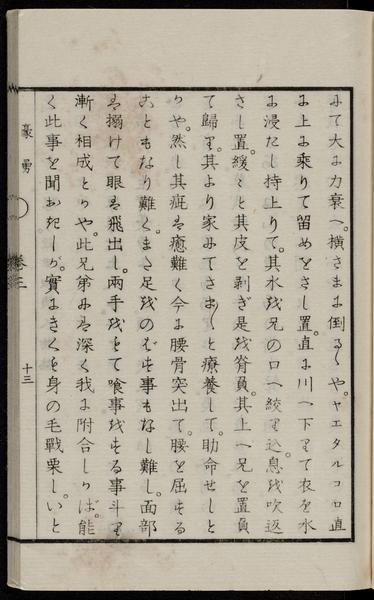 みて大に力衰へ。横さまに倒るゝや。ヤエタルコロ直
に上に乗りて留めをさし置。直に川へ下りて衣を水
に浸たし持上りて。其水を兄の口へ絞り込。息を吹返
さし置。緩々と其皮を剥ぎ是を脊負。其上へ兄を置負
て歸り。其より家にてさま〲と療養して。助命せしと
かや。然し其疵は癒難く今に腰骨突出て。腰を屈する
こともなり難く。また足をのばす事もなし難し。面部
は搦けて眼は飛出し。兩手をもて喰事をする事斗り
漸く相成とかや。此兄弟には深く我に附合しかば。能
く此事を聞おきしが。實にきくも身の毛戰栗しいと
豪勇
卷三
十三